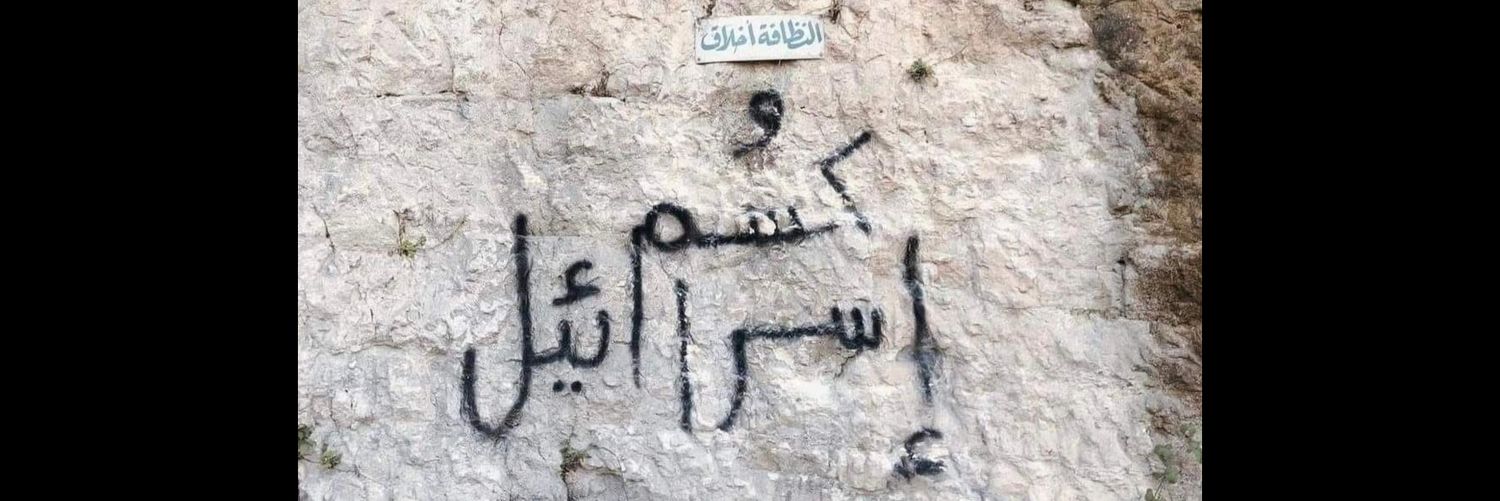 النظافة أخلاق
كُسم
إسرائيل